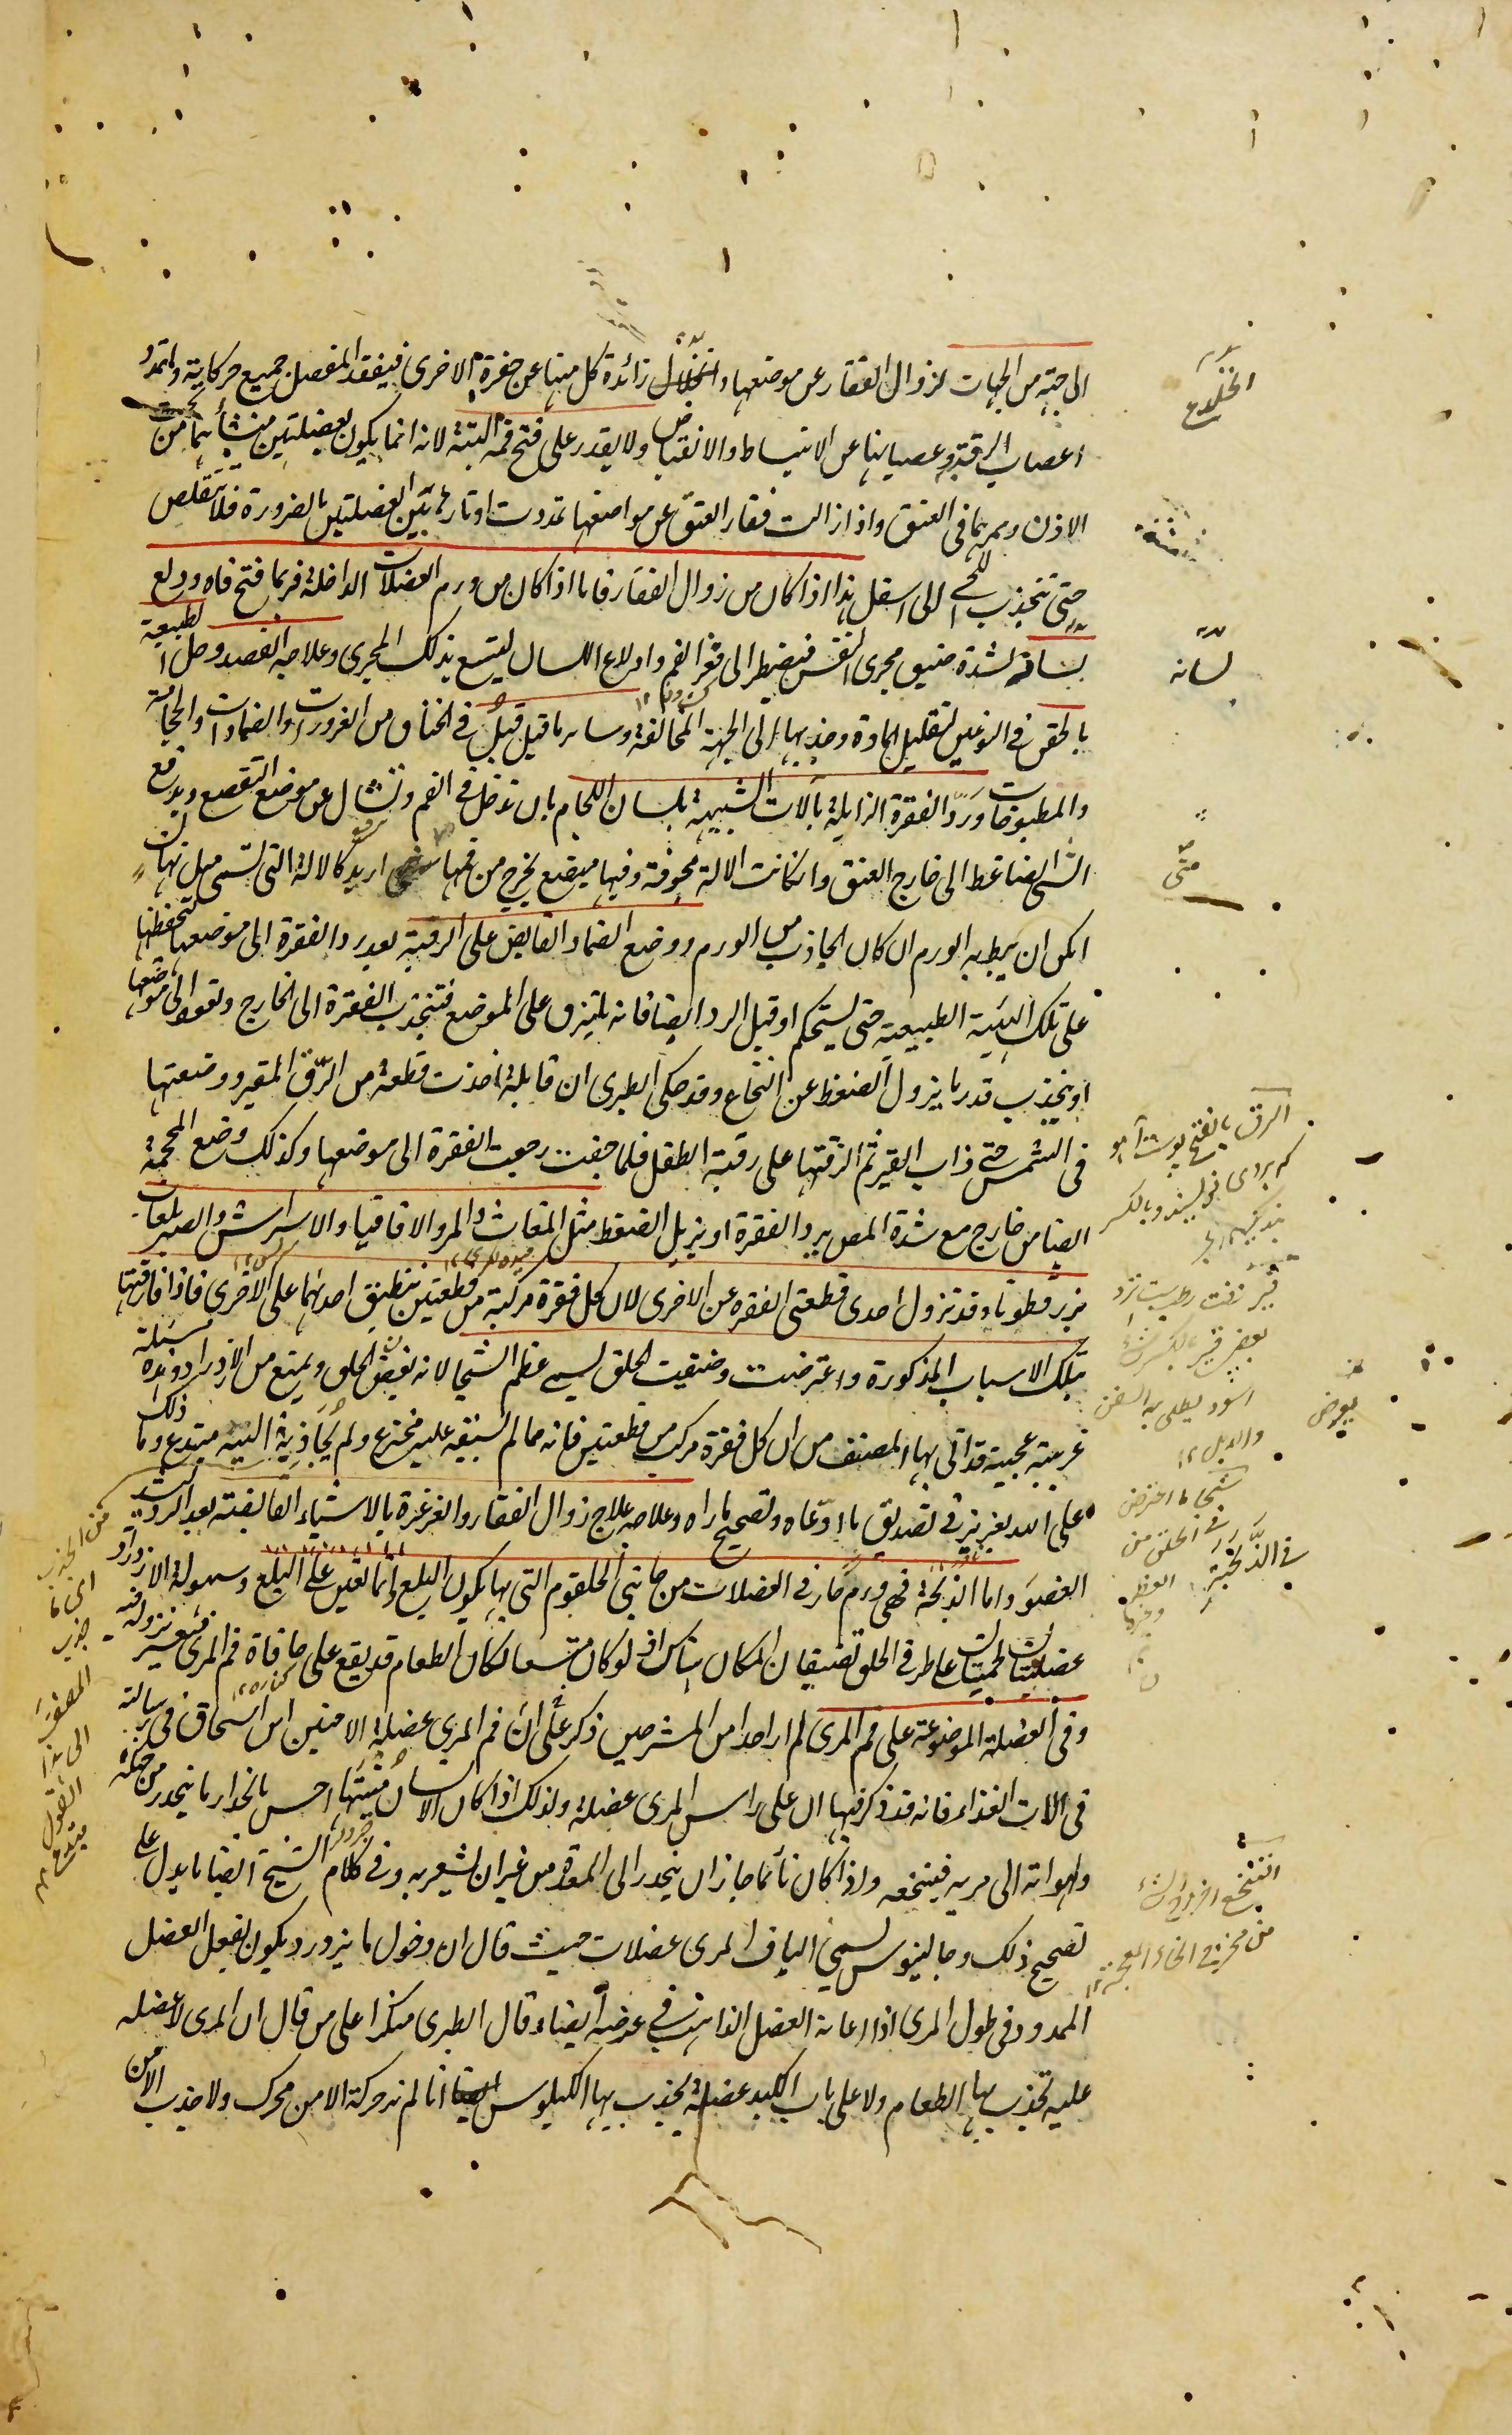 الى جهة من الجهات لزوال الفقار عن موضعها وانخلاع زائدة كل منها عن حفرة الاخرى فيفقد المفصل جميع حركاته وتمدد
اعصاب الرقبة وعصيانها عن الانبساط والانقباض ولا يقدر على فتح فمه البتة لانه انما يكون بعضلتين منشأهما من تحت
الاذن وممرهما فى العنق واذا زالت فقار العنق عن مواضعها تمددت اوتار هاتين العضلتين بالضرورة فلا تتقلص
حتى تنجذب اللحى الى اسفل هذا اذا كان من زوال الفقار فاما اذا كان من ورم العضلات الداخلة فربما فتح فاه ودلع
لسانه لشدة ضيق مجرى النفس فيضطر الى فغر الفم وادلاع اللسان ليتسع بذلك المجرى وعلاجه الفصد وحل الطبيعة
بالحقن فى النوعين لتقليل المادة وجذبها الى الجهة المخالفة وسائر ما قيل قبل فى الخناق من الغرورات والضمادات والحجامة
والمطبوخات ورد الفقرة الزايلة بآلات الشبيهة بلسان اللجام بان تدخل فى الفم وتشال عن موضع التقصع ويدفع
الشى الضاغط الى خارج العنق وان كانت الالة مجوفة وفيها مبضع يخرج من فمها متى اريد كالالة التى تسمى
امكن ان يبط به الورم ان كان الجاذب من الورم ووضع الضماد القابض على الرقبة بعد رد الفقرة الى موضعها لتحفظها
على تلك الهيئة الطبيعية حتى يستحكم او قبل الرد ايضا فانه يلتزق على الموضع فتنجذب الفقرة الى الخارج وتعود الى موضعها
او ينجذب قدر ما يزول الضغط عن النخاع وقد حكى الطبرى ان قابلة اخذت قطعة من الزق المقير ووضعتها
فى الشمس حتى ذاب القير ثم الزقتها على رقبة الطفل فلما جفت رجعت الفقرة الى موضعها وكذلك وضع المحجمة
ايضا من خارج مع شدة المص يرد الفقرة او يزيل الضغط مثل المغاث والمر والاقاقيا والاسراش والصبر بلعاب
بزر قطونا وقد تزول احدى قطعتى الفقرة عن الاخرى لان كل فقرة مركبة من قطعتين تنطبق احداهما على الاخرى فاذا فارقتها
بتلك الاسباب المذكورة واعترضت وضيقت الحلق يسمى عظم الشجا لانه يعرض الحلق ويمنع من الازدراد وهذه مسئلة
غريبة عجيبة قد اتى بها المصنف من ان كل فقرة مركبة من قطعتين فانه مما لم يسبقه عليه مخترع ولم يحاذيه البتة مبتدع وما ذلك
على الله بعزيز فى تصديق ما ادعاه وتصحيح ما راه وعلاجه علاج زوال الفقار والغرغرة بالاشياء القابضة بعد الرد
العضو واما الذبحة فهى ورم حار فى العضلات من جانبى الحلقوم التى بها يكون البلع وانما يعين على البلع وسهولة الازدراد
عضلتان لحميتان على طرفى الحلق تضيقان المكان هناك اذ لو كان متسعا لكان الطعام قد يقع على حافاة فم المرى فيتعسر نزوله فيه
وفى العضلة الموضوعة على فم المرى لم ار احدا من المشرحين ذكر على ان فم المرى عضلة الا حنين ابن اسحاق فى رسالته
فى الات الغذاء فانه قد ذكر فيها ان على راس المرى عضلة ولذلك اذا كان الانسان منتبها احس بانحدار ما ينحدر من حنكه
ولهواته الى مريه فيتنخعه واذا كان نائما جاز ان ينحدر الى المعدة من غير ان يشعر به وفى كلام الشيخ ايضا ما يدل على
تصحيح ذلك وجالينوس يسمى الياف المرى عضلات حيث قال ان دخول ما يزدرد يكون بفعل العضل
الممدود فى طول المرى اذا اعانه العضل الذاهب فى عرضه ايضا وقال الطبرى منكرا على من قال ان المرى لا عضلة
عليه تجذب بها الطعام ولا على باب الكبد عضلة يجذب بها الكيلوس انا لم نر حركة الا من محرك ولا جذب الا من
انخلاع
لسانه
متى
الزق بالفتح پوست آهو
يعرض
اسود يطلى به السفن
والابل ١٢
شجا ما اعترض
فى الحلق من
العظم
وغيره
فى الذبحة